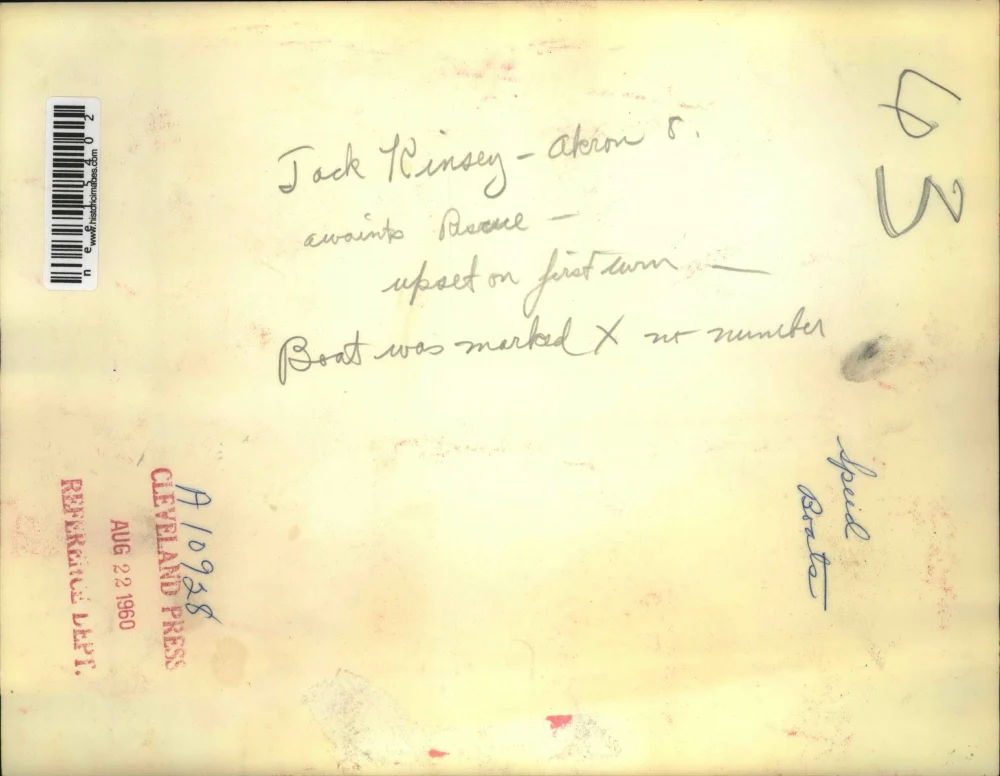 Jack Kinsey - Akron 8.
awaints Rescue -
upset on first turn -
Boat was marked X no number
63
Speed
Boats
A10928
CLEVELAND PRESS
AUG 22 1960
REFERENCE DEPT.
www.historicimages.com